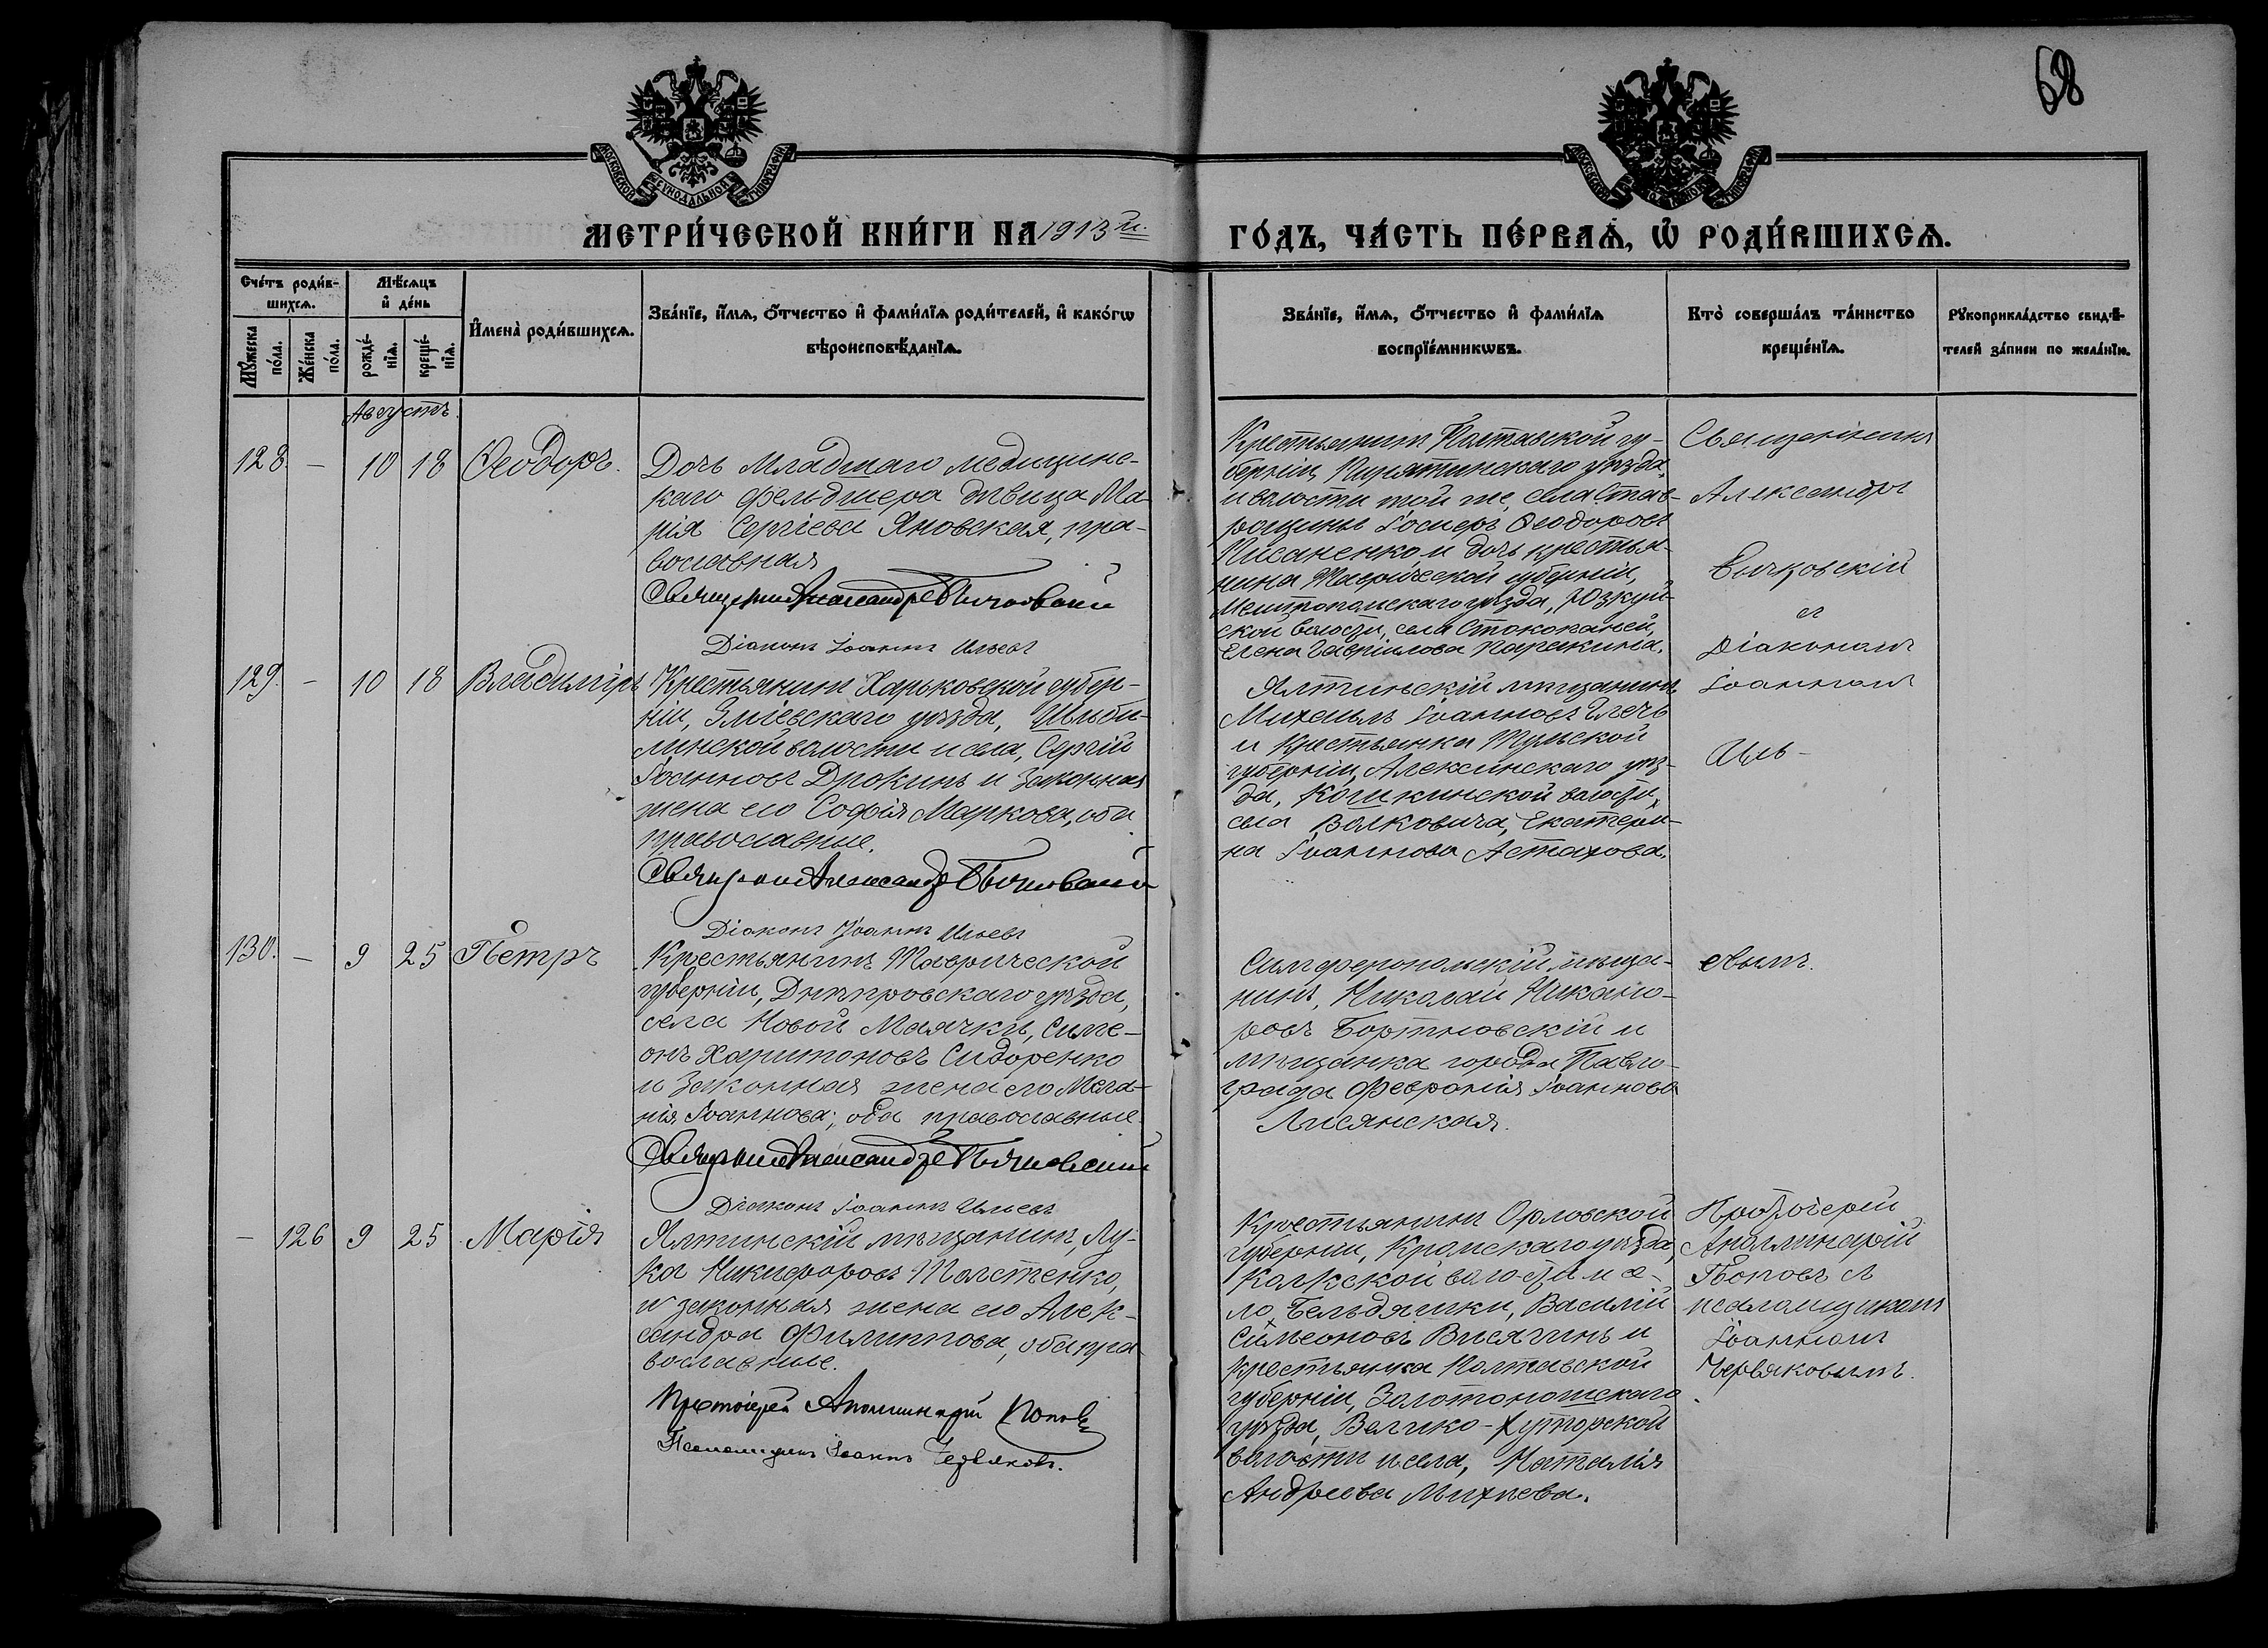 68
МОСКОВСКОЙ СѴНОДАЛЬНОЙ ТИПОГРАФІИ
МОСКОВСКОЙ СѴНОДАЛЬНОЙ ТИПОГРАФІИ
МЕТРИ́ЧЕСКОЙ КНИ́ГИ НА 1913 й.
ГО́ДЪ, ЧА́СТЬ ПЕ́РВАѦ, Ѡ҆ РОДИ́ВШИХСѦ.
Сче́тъ роди́в-
шихсѧ.
Мѣ́сѧцъ
и҆ де́нь
Мꙋ́жеска
по́ла.
Же́нска
по́ла.
рожде́-
нїѧ.
креще́-
нїѧ.
И҆мена̀ роди́вшихсѧ.
Зва́нїе, и҆́мѧ, ѻ҆́тчество и҆ фами́лїѧ роди́телей, и҆ како́гѡ
вѣроисповѣ́данїѧ.
Зва́нїе, и҆́мѧ, ѻ҆́тчество и҆ фами́лїѧ
воспрїе́мникѡвъ.
Кто̀ соверша́лъ та́инство
креще́нїѧ.
Рꙋкоприкла́дство свидѣ́-
телей за́писи по жела́нїю.
Августъ.
128. — 10 18 Ѳеодоръ.
Дочь младшаго медицинс-
каго фельдшера дѣвица Ма-
рія Сергіева Яновская, пра-
вославная
Священникъ Александръ Бычковскій
Діаконъ Іоаннъ Ильевъ
Крестьянинъ Полтавской гу-
берніи, Пирятинскаго уѣзда
и волости той же, села Став-
рощины Іосифъ Ѳеодоровъ
Писаненко, и дочь крестья-
нина Таврической губерніи,
Мелитопольскаго уѣзда, Юзкуй-
ской волости, села Стокопаней,
Елена Гавріилова Карякина.
Священникъ
Александръ
Бычковскій
съ
Діакономъ
Іоанномъ
Иль-
129. — 10 18 Владиміръ
Крестьянинъ Харьковской губер-
ніи, Зміевскаго уѣзда,
волости и села, Сергій
Іоанновъ Дрокинъ и законная
жена его Софія Маркова, оба
православные.
Священникъ Александръ Бычковскій
Діаконъ Іоаннъ Ильевъ
Ялтинскій мѣщанинъ
Михаилъ Іоанновъ
и крестьянка Тульской
губерніи, Алексинскаго уѣз-
да, Кошкинской волости,
села Волковича, Екатери-
на Іоаннова Астахова.
130. — 9 25 Петръ
Крестьянинъ Таврической
губерніи, Днѣпровскаго уѣзда,
села Новой Маячки, Симе-
онъ Харитоновъ Сидоренко
и законная жена его Мела-
нія Іоаннова; оба православные.
Священникъ Александръ Бычковскій
Діаконъ Іоаннъ Ильевъ
Симферопольскій мѣща-
нинъ, Николай Никано-
ровъ Бортновскій и
мѣщанка города Павло-
града Февронія Іоаннова
Лисянская.
евымъ.
— 126 9 25 Марія
Ялтинскій мѣщанинъ, Лу-
ка Никифоровъ Толстенко,
и законная жена его Алек-
сандра Филиппова, оба пра-
вославные.
Протоіерей Аполлинарій Поповъ
Псаломщикъ Іоаннъ Червяковъ.
Крестьянинъ Орловской
губерніи, Кромскаго уѣзда,
волости и се-
ла Бельдяжки, Василій
Симеоновъ Висячинъ и
крестьянка Полтавской
губерніи, Золотоношскаго
уѣзда, Велико-Хуторской
волости и села, Наталія
Андреева Михнева.
Протоіерей
Аполлинарій
Поповъ съ
псаломщикомъ
Іоанномъ
Червяковымъ.